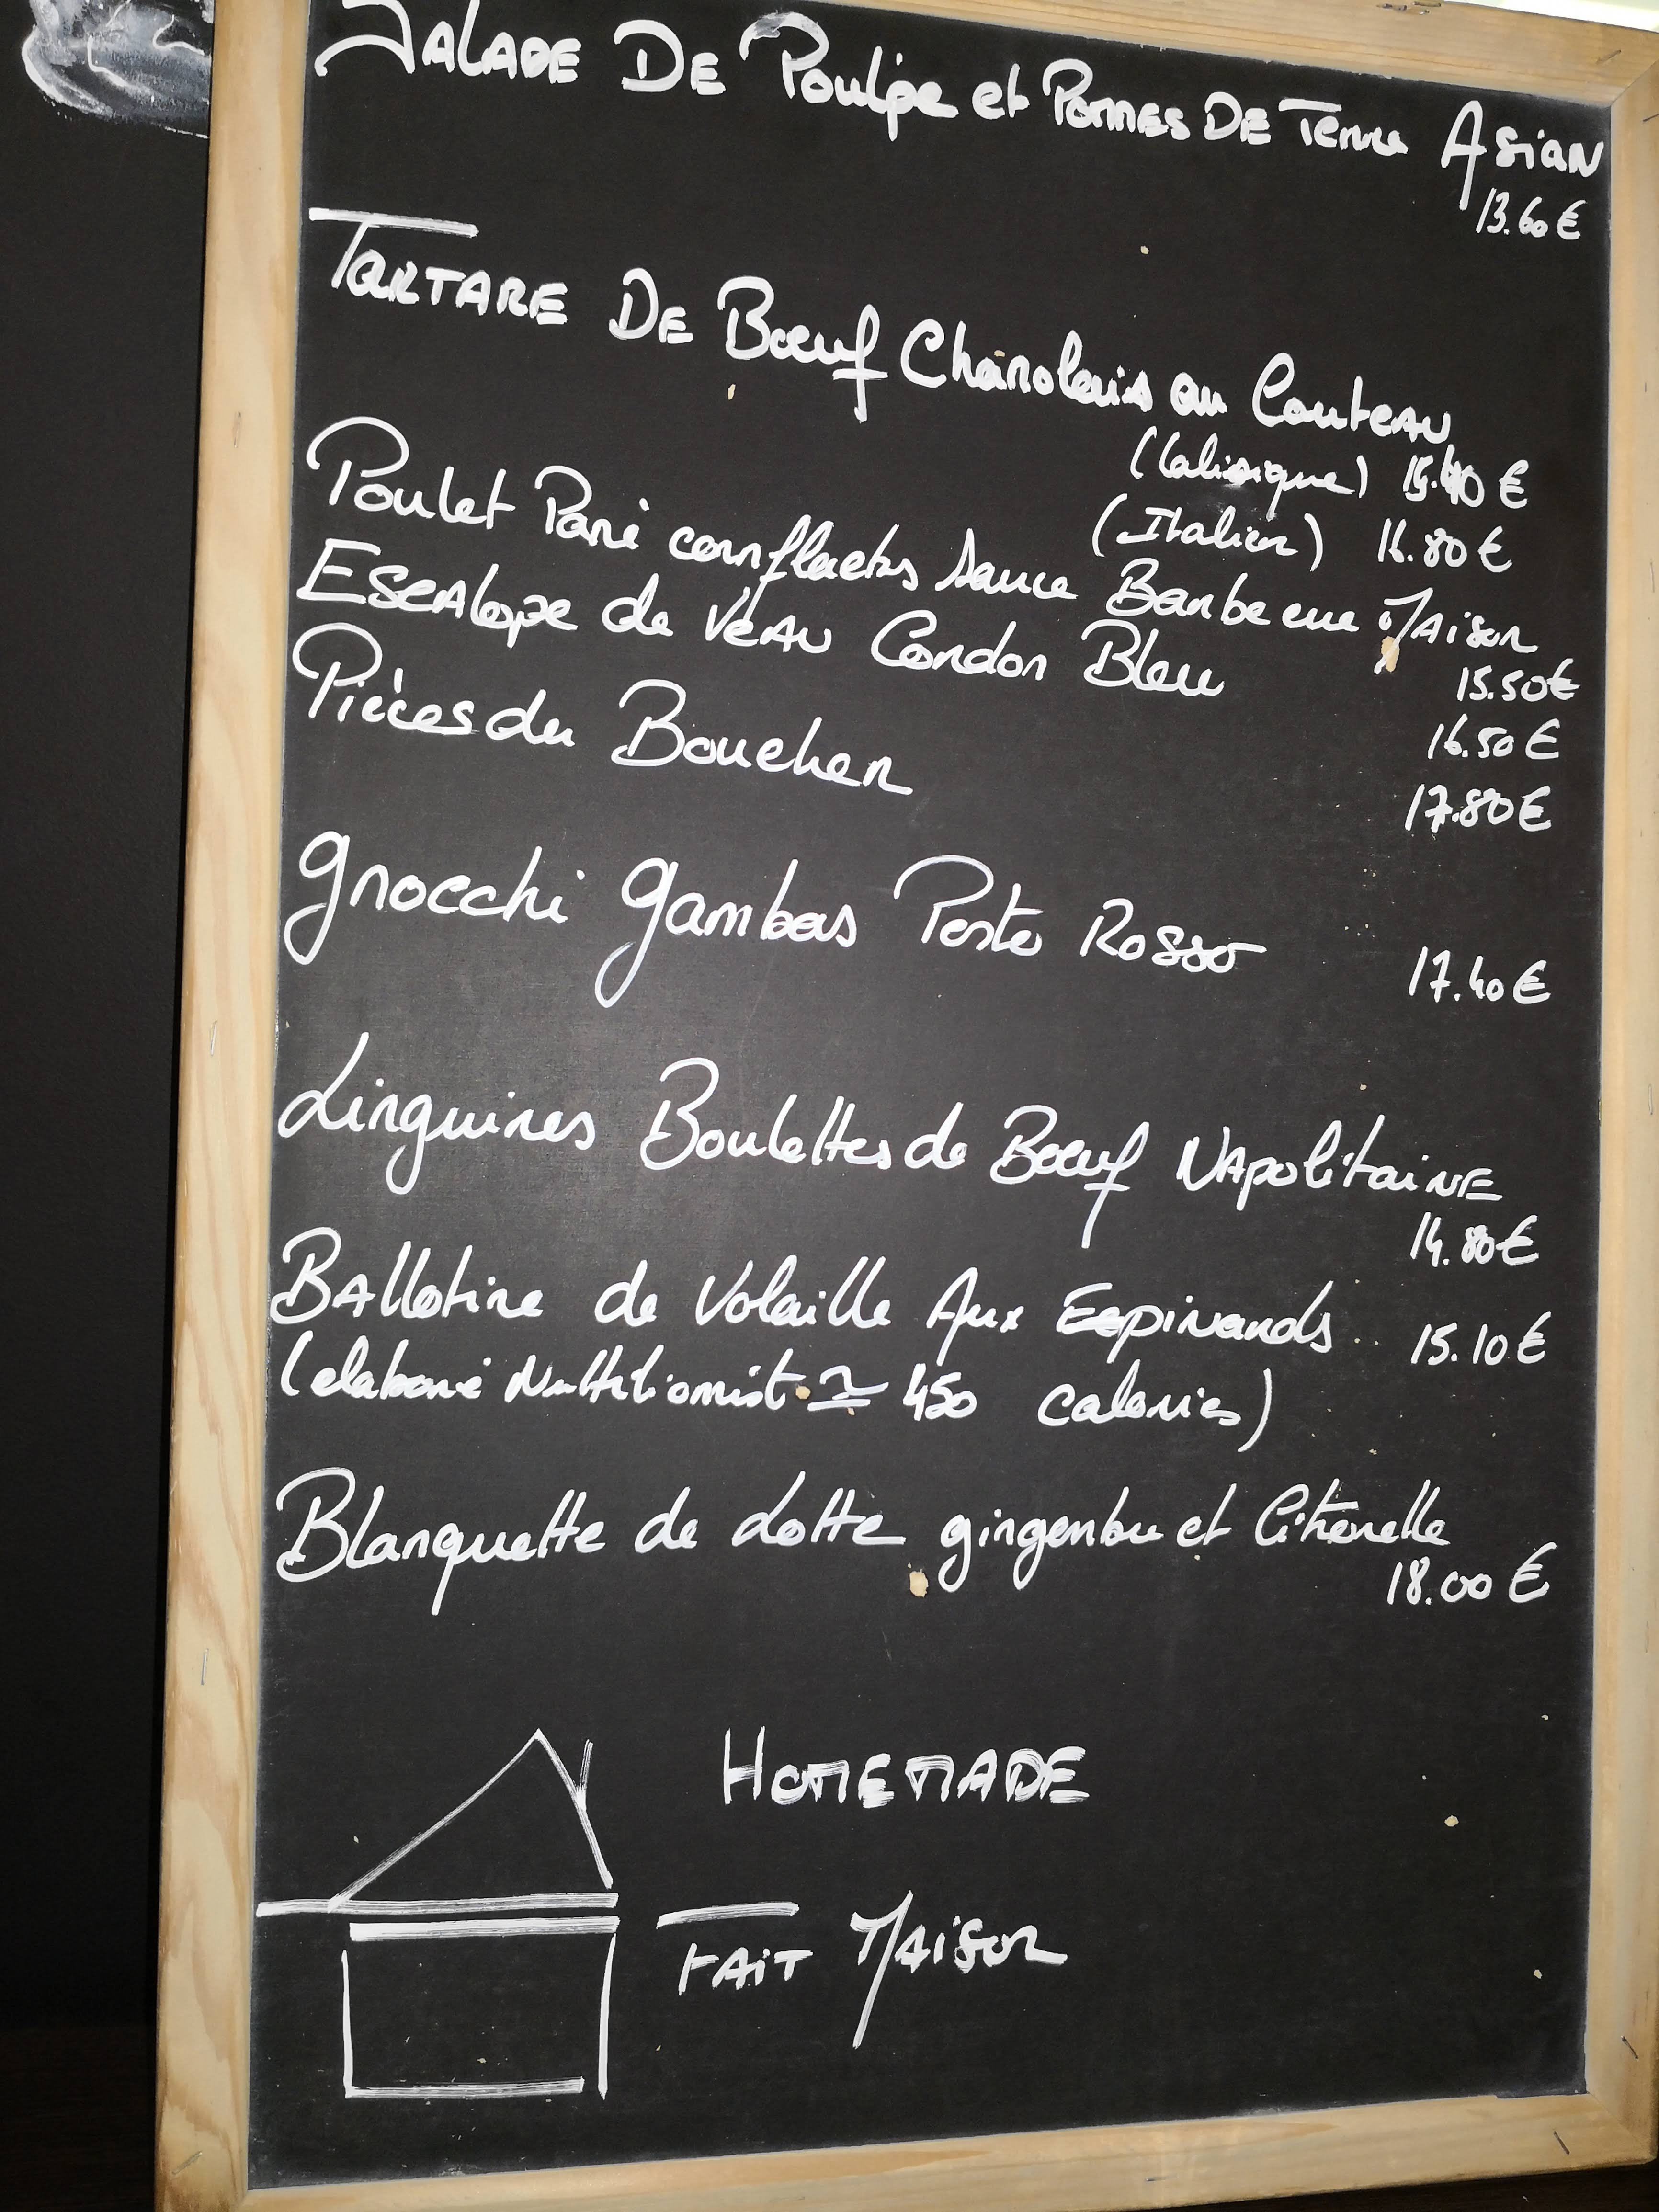 SALADE DE Poulpe et POMMES DE Terre ASiAN
13.60€
TARTARE DE Bœuf Charolais au Couteau
15.40€
(Italien) 16.80€
Poulet Pané cornflackes sauce Barbecue MAison
15.50€
EscAlope de VeAu Cordon Bleu
16.50€
Pièces du Boucher
17.80€
gnocchi gambas Pesto Rosso
17.40€
Linguines Boulettes de Bœuf NApolitaiNE
14.80€
BAllotine de Volaille Aux Epinards 15.10€
(elaboré ≃ 450 calories)
Blanquette de Lotte gingembre et Citronelle
18.00€
HOMEMADE
FAiT MAison